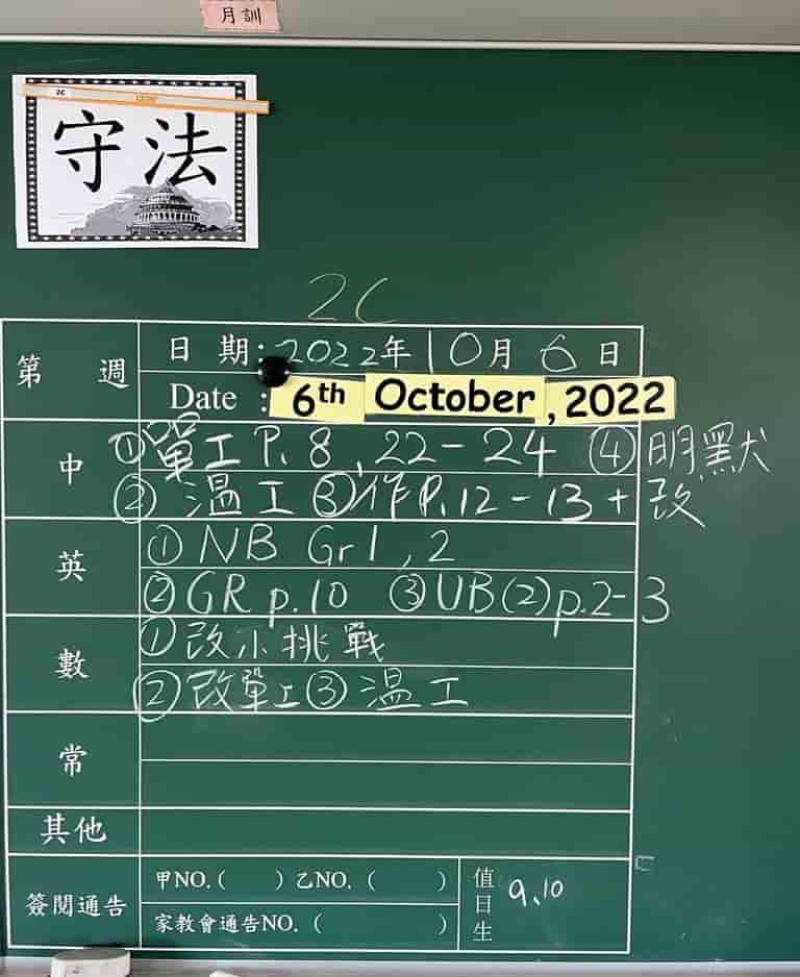 月訓
2C
守法
2C
第 週
日 期：2022年10月6日
Date : 6th October, 2022
中
①單工 P. 8, 22-24 ④明默
②溫工 ③作P.12-13+改
英
①NB Gr1, 2
②GR p.10 ③UB(2)p.2-3
數
①改小挑戰
②改單工③溫工
常
其他
簽閱通告
甲NO.( ) 乙NO. ( )
家教會通告NO. ( )
值日生
9、10